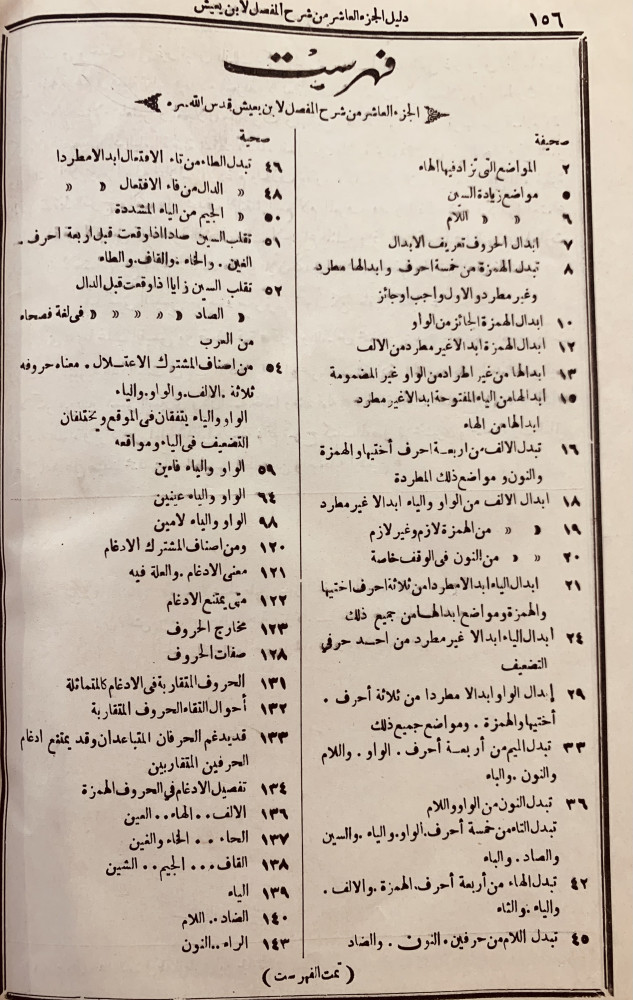 ١٥٦
دليل الجزء العاشر من شرح المفصل لابن يعيش
فهرست
الجزء العاشر من شرح المفصل لابن يعيش قدس الله سره
صحيفة
٢ المواضع التى تزاد فيها الهاء
٥ مواضع زيادة السين
٦ » » اللام
٧ ابدال الحروف تعريف الابدال
٨ تبدل الهمزة من خمسة احرف وابدالها مطرد
وغير مطرد والاول واجب اوجائز
١٠ ابدال الهمزة الجائز من الواو
١٢ ابدال الهمزة ابدالا غير مطرد من الالف
١٣ ابدالها من غير اطراد من الواو غير المضمومة
١٥ ابدالها من الياء المفتوحة ابدالا غير مطرد
ابدالها من الهاء
١٦ تبدل الالف من اربعة احرف أختيها والهمزة
والنون ومواضع ذلك المطردة
١٨ ابدال الالف من الواو والياء ابدالا غير مطرد
١٩ » » من الهمزة لازم وغير لازم
٢٠ » » من النون فى الوقف خاصة
٢١ ابدال الياء ابدالا مطردا من ثلاثة احرف اختيها
والهمزة ومواضع ابدالها من جميع ذلك
٢٤ أبدال الياء ابدالا غير مطرد من احد حرفي
التضعيف
٢٩ إبدال الواو ابدالا مطردا من ثلاثة أحرف .
أختيها والهمزة . ومواضع جميع ذلك
٣٣ تبدل الميم من أربعة أحرف . الواو . واللام
والنون . والباء
٣٦ تبدل النون من الواو واللام
تبدل التاء من خمسة أحرف . الواو . والياء . والسين
والصاد . والباء
٤٢ تبدل الهاء من أربعة أحرف . الهمزة . والالف .
والياء . والتاء
٤٥ تبدل اللام من حرفين . النون . والضاد
صحية
٤٦ تبدل الطاء من تاء الافتعال ابدالا مطردا
٤٨ » الدال من فاء الافتعال » »
٥٠ » الجيم من الياء المشددة
٥١ تقلب السين صادا اذا وقعت قبل اربعة احرف .
الغين . والخاء . والقاف . والطاء
٥٢ تقلب السين زايا اذا وقعت قبل الدال
» الصاد » » » » فى لغة فصحاء
من العرب
٥٤ من اصناف المشترك الاعتلال . معناه حروفه
ثلاثة . الالف . والواو . والياء
الواو والياء يتفقان فى الموقع ويختلفان
التضعيف فى الياء ومواقعه
٥٩ الواو والياء فاءين
٦٤ الواو والياء عينين
٩٨ الواو والياء لامين
١٢٠ ومن اصناف المشترك الادغام
١٢١ معنى الادغام . والعلة فيه
١٢٢ متى يمتنع الادغام
١٢٣ مخارج الحروف
١٢٨ صفات الحروف
١٣١ الحروف المتقاربة فى الادغام كالمتماثلة
١٣٢ أحوال التقاء الحروف المتقاربة
١٣٣ قد يدغم الحرفان المتباعدان وقد يمتنع ادغام
الحرفين المتقاربين
١٣٤ تفصيل الادغام في الحروف الهمزة
١٣٦ الالف . . الهاء . . العين
١٣٧ الحاء . . الخاء والغين
١٣٨ القاف . . . الجيم . . الشين
١٣٩ الياء
١٤٠ الضاد . . اللام
١٤٣ الراء . . النون
( تمت الفهرست )